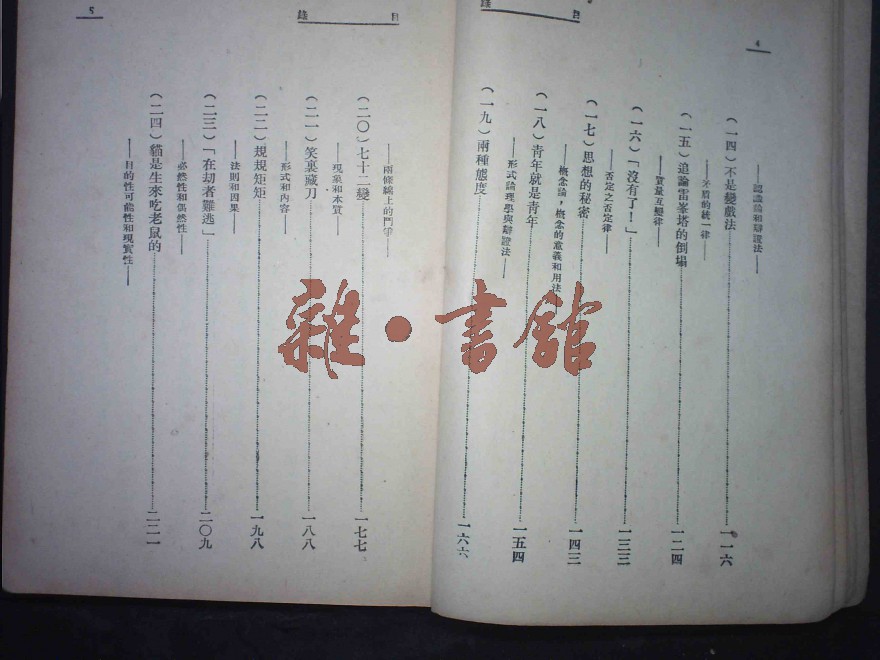 4
目錄
——認識論和辯證法——
(一四)不是變戲法……一一六
——矛盾的統一律——
(一五)追論雷峯塔的倒塌……一二四
——質量互變律——
(一六)「沒有了!」……一三三
——否定之否定律——
(一七)思想的秘密……一四三
——概念論,概念的意義和用法
(一八)靑年就是靑年……一五四
——形式論理學與辯證法——
(一九)兩種態度……一六六
5
目錄
——兩條線上的鬥爭——
(二〇)七十二變……一七七
——現象和本質——
(二一)笑裏藏刀……一八八
——形式和內容——
(二二)規規矩矩……一九八
——法則和因果——
(二三)「在劫者難逃」……二〇九
——必然性和偶然性——
(二四)貓是生來吃老鼠的……二二一
——目的性可能性和現實性——
雜·書館